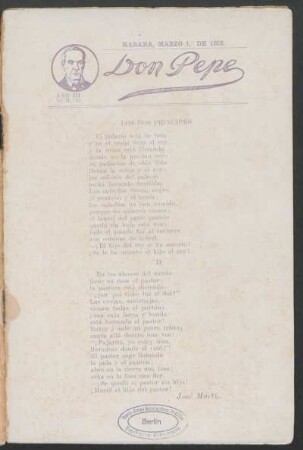 HABANA, MARZO 1.º DE
Don Pepe
LOS DOS PRINCIPES
El palacio está de luto
y en el trono llora el rey
y la reina está llorando
donde no la pueden ver:
en pañuelos de olán fino
lloran la reina y el rey:
los señores del palacio
están llorando también.
Los caballos llevan negro
el penacho y el arnés:
los caballos no han comido,
porque no quieren comer:
el laurel del patio grande
quedó sin hoja esta vez:
todo el mundo fue al entierro
con coronas de laurel.
¡El hijo del rey se ha muerto!
¡Se le ha muerto el hijo al rey!
II
En los álamos del monte
tiene su casa el pastor:
la pastora está diciendo:
"¿por qué tiene luz el sol?"
Las ovejas, cabizbajas,
vienen todas al portón:
¡una caja larga y honda
está forrando el pastor!
Entra y sale un perro triste:
canta allá dentro una voz:
"¡Pajarito, yo estoy loca,
llévadme donde él voló!"
El pastor coge llorando
la pala y el azadón:
abre en la tierra una fosa,
echa en la fosa una flor:
¡Se quedó el pastor sin hijo!
¡Murió el hijo del pastor!
José Martí.
Berlin